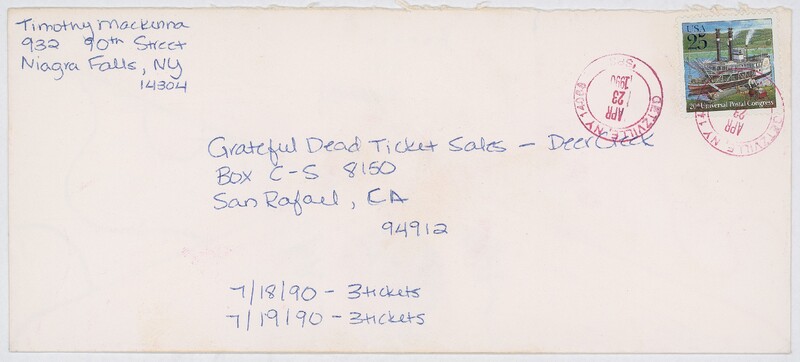 Timothy Mackenna
932 90th Street
Niagra Falls, NY
14304
USA
25
20th Universal Postal Congress
GETZVILLE, NY 14068
APR
23
1990
GETZVILLE, NY 14
APR
23
Grateful Dead Ticket Sales - Deer Creek
Box C-S 8150
San Rafael, CA
94912
7/18/90 - 3 tickets
7/19/90 - 3 tickets